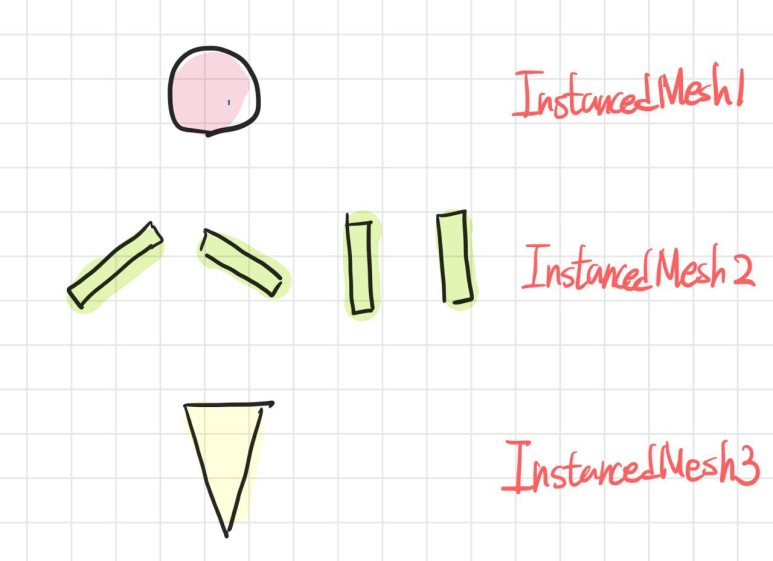 InstancedMesh1
InstancedMesh2
InstancedMesh3